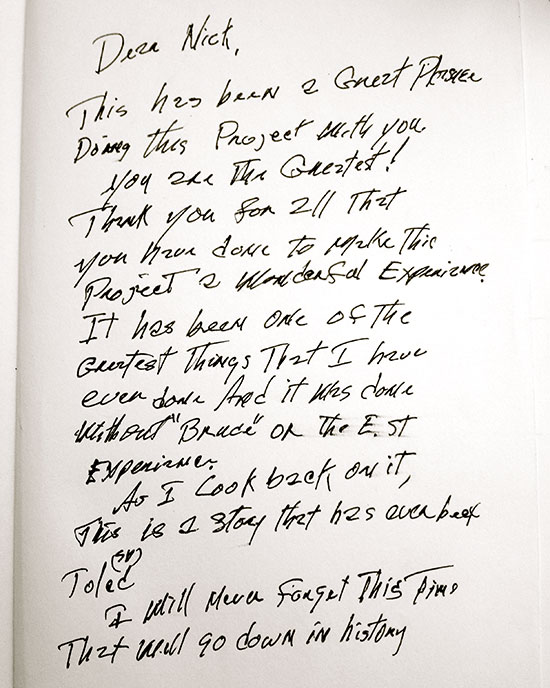 Dear Nick,
This has been a Great
Doing this Project with you
you are the Greatest!
Thank you for all That
you have done to Make This
Project a Wonderful Experience.
It has been one of The
Greatest Things That I have
ever done And it was done
without "Bruce" or The E. St
Experience.
As I Look back on it,
This is a Story that has ever been
Toled (sp)
I will Never Forget This Time
That will go down in history